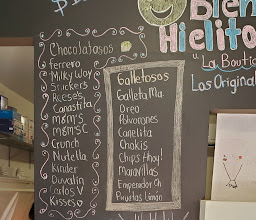 Bien
Hielito
"La Boutic
Los Original
Chocolatosos
Ferrero
Milky Way
Snickers
Reese's
Canastita
M&M'S
M&M'S C
Crunch
Nutella
Kinder
Duvalin
Carlos V
Kisses
Galletosos
Galleta Ma.
Oreo
Polvorones
Canelita
Chokis
Chips Ahoy!
Maravillas
Emperador Ch
Piruetas Limón